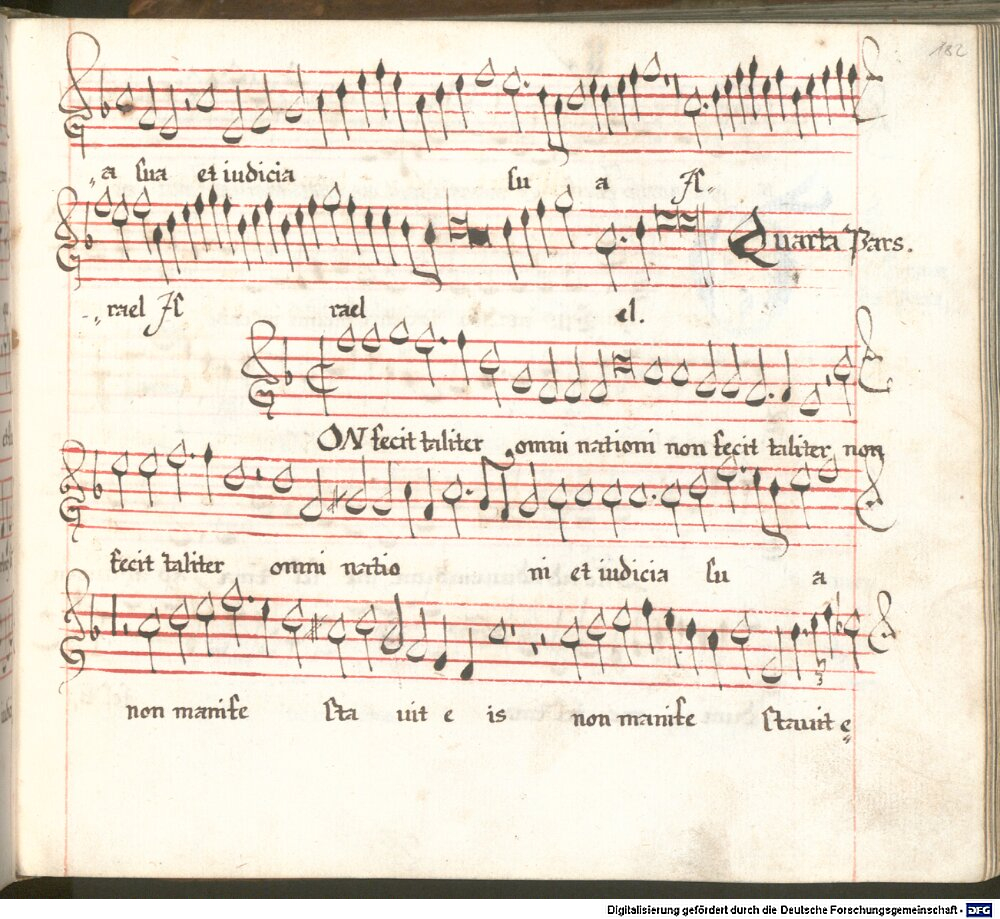 182
a sua et iudicia su a Is-
rael Is rael el.
Quarta Pars.
ON fecit taliter omni nationi non fecit taliter non
fecit taliter omni natio ni et iudicia su a
non manife sta uit e is non manife stauit e
Digitalisierung gefördert durch die Deutsche Forschungsgemeinschaft - DFG